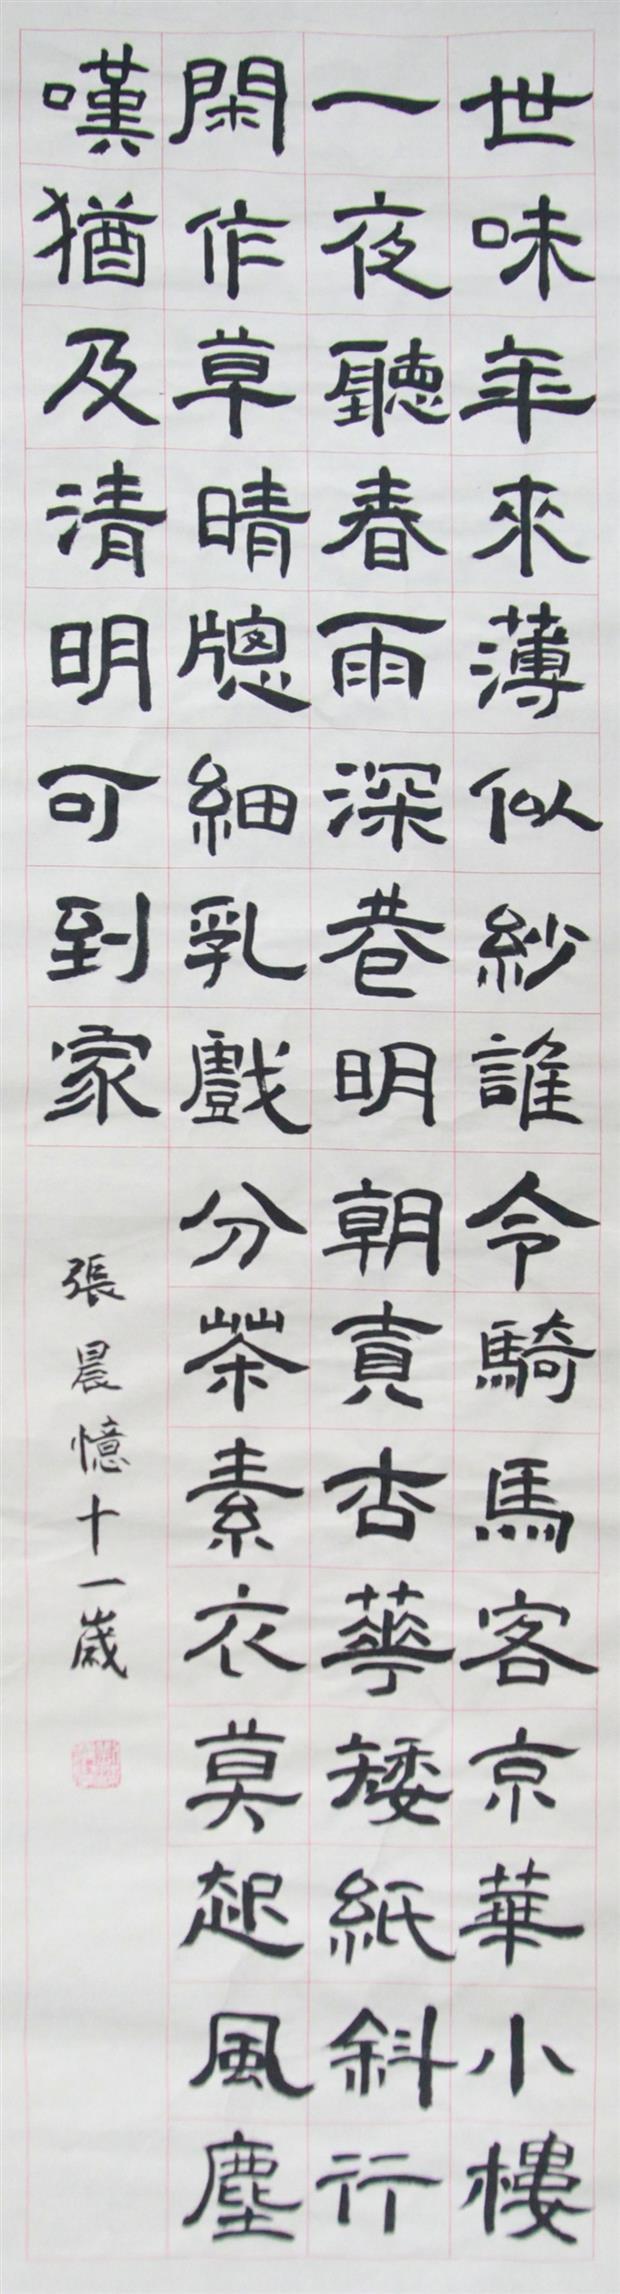 世味年來薄似紗誰令騎馬客京華小樓
一夜聽春雨深巷明朝賣杏華矮紙斜行
閑作草晴牕細乳戲分茶素衣莫起風塵
嘆猶及清明可到家
張晨憶十一歲